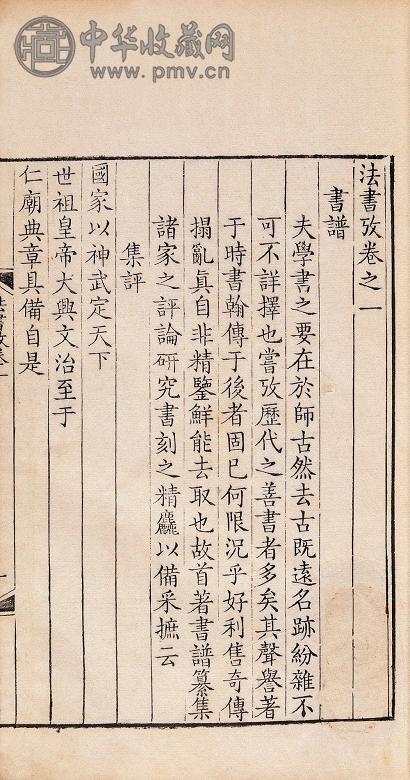 中华收藏网
www.pmv.cn
法書攷卷之一
書譜
夫學書之要在於師古然去古既遠名跡紛雜不
可不詳擇也嘗攷歷代之善書者多矣其聲譽著
于時書翰傳于後者固已何限況乎好利售奇傳
搨亂真自非精鑒鮮能去取也故首著書譜纂集
諸家之評論研究書刻之精麤以備采摭云
集評
國家以神武定天下
世祖皇帝大興文治至于
仁廟典章具備自是